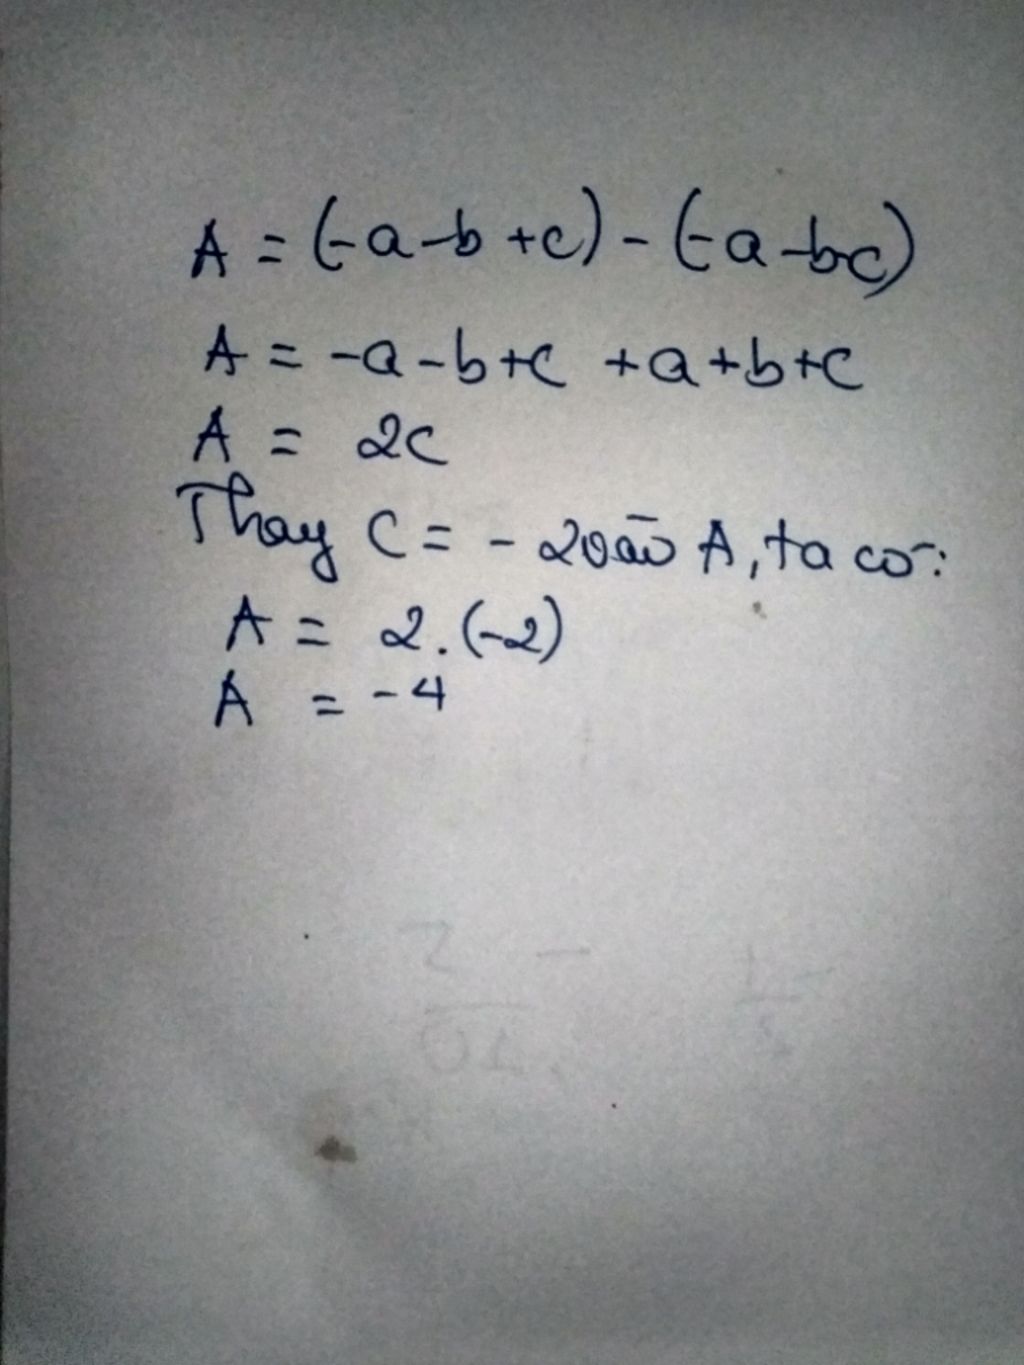 A = (-a-b+c) - (-a-bc)
A = -a-b+c +a+b+c
A = 2c
Thay c = -2 vào A, ta có:
A = 2.(-2)
A = -4